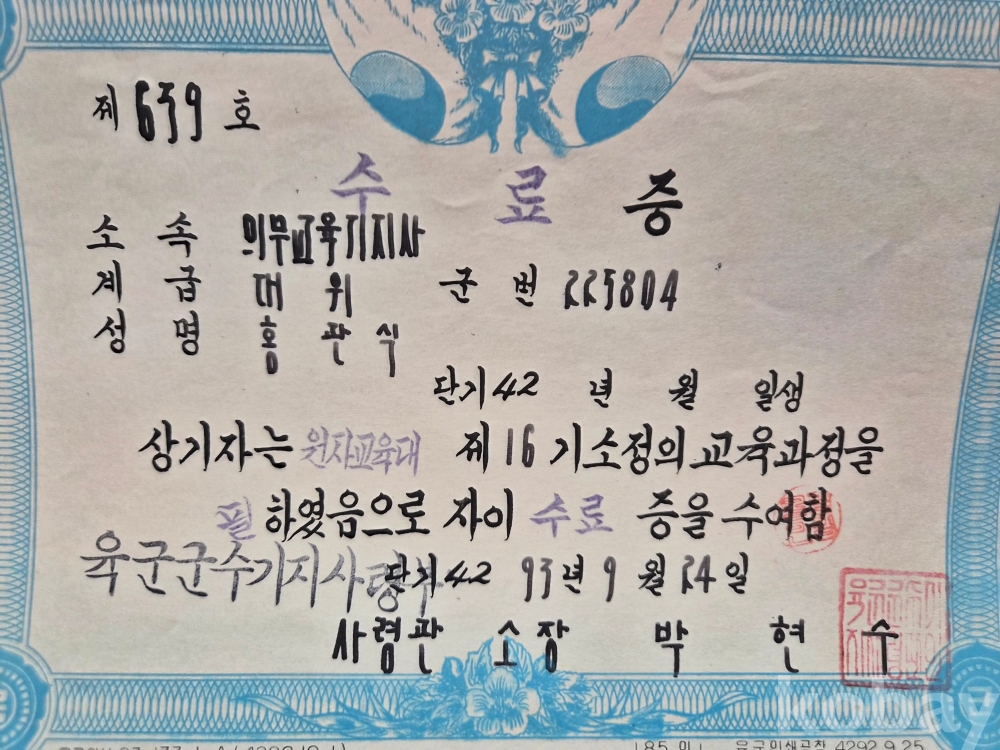 제 639 호
수 료 증
소 속 의무교육기지사
계 급 대 위 군 번 225804
성 명 홍 관 식
단기 42 년 월 일생
상기자는 원자교육대 제 16 기소정의 교육과정을
필 하였음으로 자이 수료 증을 수여함
육군군수기지사령부
단기 42 93 년 9 월 24 일
사령관 소장 박 현 수